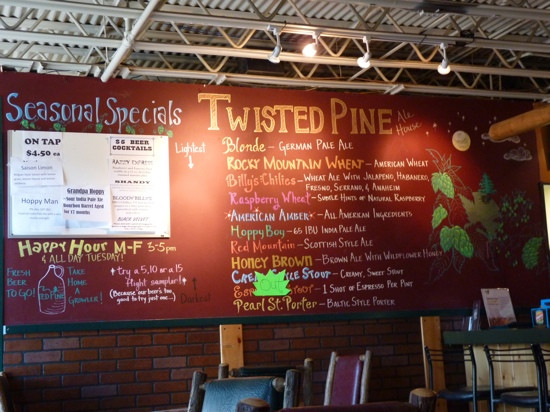 Seasonal Specials
ON TAP
$4.50 ea
Saison Lonian
Hoppy Man
Grandpa Hoppy
Sour India Pale Ale
Bourbon Barrel Aged
for 12 months
$5 BEER
COCKTAILS
SHANDY
BLOODY BILLY'S
Happy Hour M-F 3-5pm
& ALL DAY TUESDAY!
FRESH
BEER
TO GO!
TAKE
HOME
A
GROWLER!
try a 5, 10 or a 15
flight sampler!
(Because our beer's too
good to try just one...)
Lightest
Darkest
TWISTED PINE Ale House
Blonde - GERMAN PALE ALE
ROCKY MOUNTAIN WHEAT - AMERICAN WHEAT
Billy's Chilies - WHEAT ALE WITH JALAPEÑO, HABANERO,
FRESNO, SERRANO, & ANAHEIM
Raspberry Wheat - SUBTLE HINTS OF NATURAL RASPBERRY
AMERICAN AMBER - ALL AMERICAN INGREDIENTS
Hoppy Boy - 65 IBU INDIA PALE ALE
Red Mountain - SCOTTISH STYLE ALE
HONEY BROWN - BROWN ALE WITH WILDFLOWER HONEY
STOUT - CREAMY, SWEET STOUT
OUT
- 1 SHOT OF ESPRESSO PER PINT
Pearl St. Porter - BALTIC STYLE PORTER